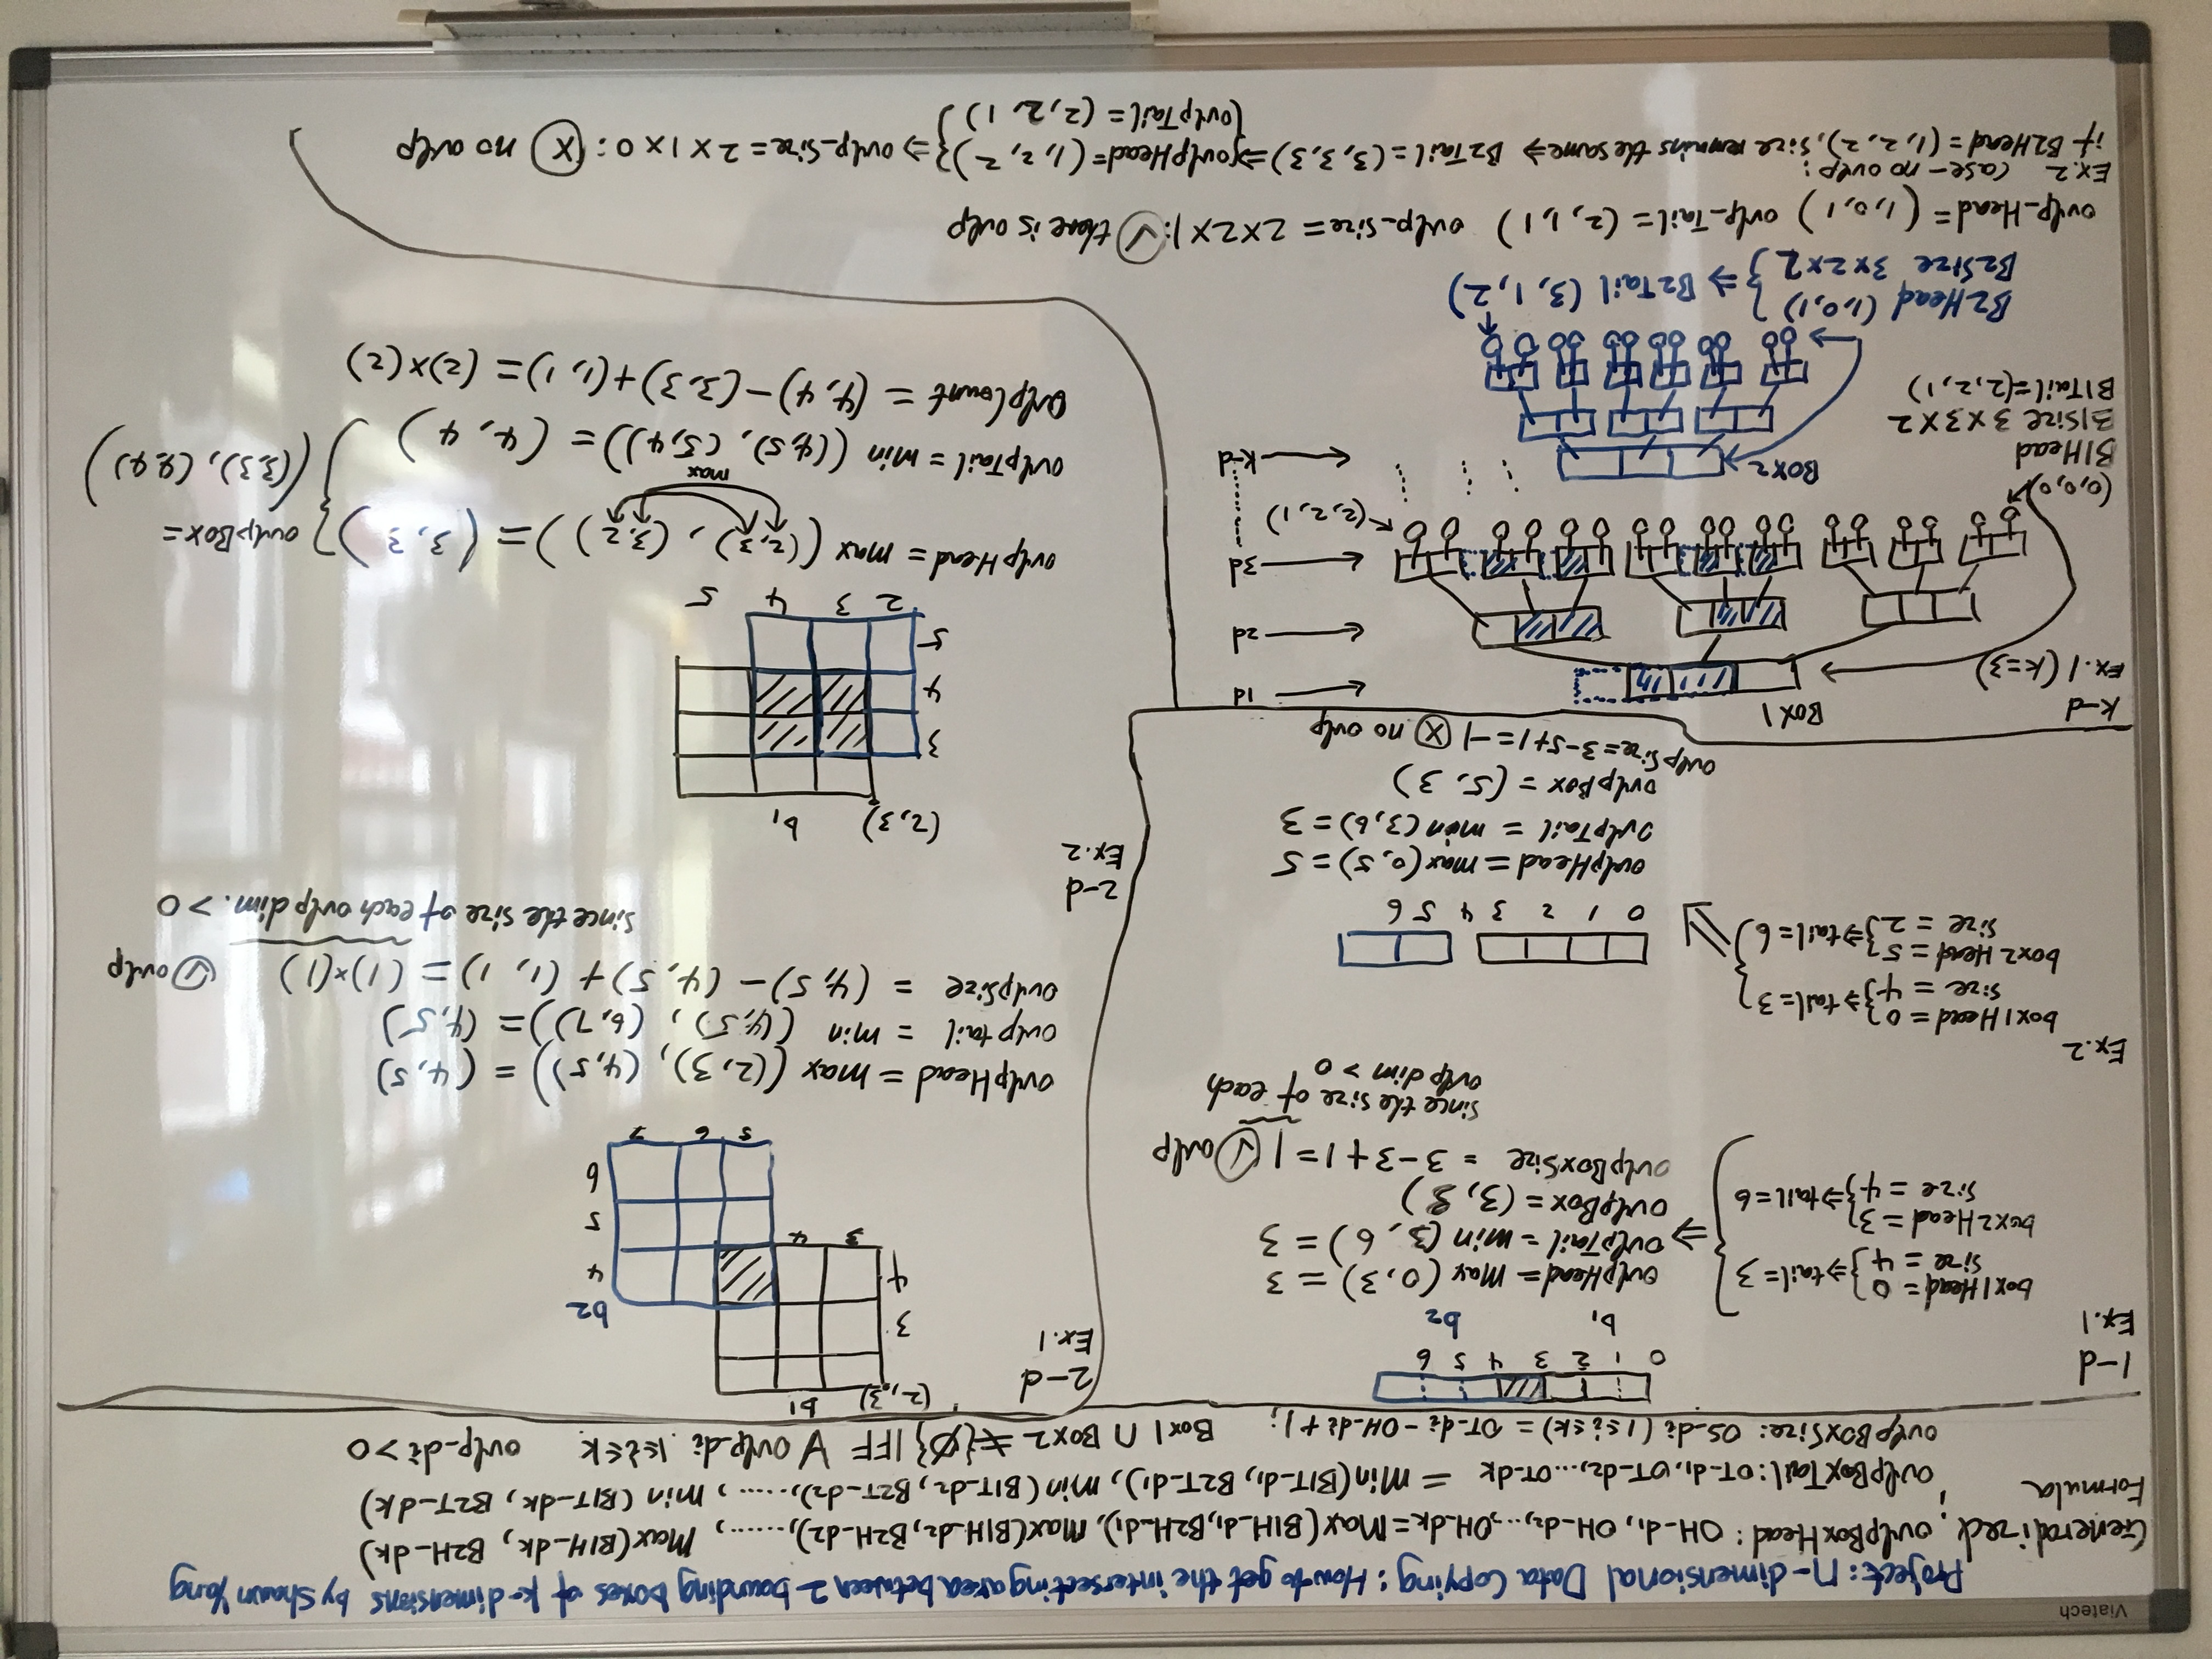 Viatech
Project: n-dimensional Data Copying: How to get the intersecting area between 2 bounding boxes of k-dimensions by Shawn Yang
Generalized Formula:
ovlpBoxHead: OH_d1, OH_d2,...,OH_dk = Max(B1H_d1,B2H_d1), Max(B1H_d2,B2H_d2),......, Max(B1H_dk, B2H_dk)
ovlpBoxTail: OT_d1, OT_d2,...OT_dk = min(B1T_d1, B2T_d1), min(B1T_d2, B2T_d2),....., min(B1T_dk, B2T_dk)
ovlpBoxSize: OS_di (1≤i≤k) = OT_di - OH_di + 1; Box1 ∩ Box2 ≠ {∅} IFF ∀ ovlp_di 1≤i≤k ovlp_di > 0
1-d
Ex.1
0 1 2 3 4 5 6
b1 b2
box1Head = 0
size = 4 } ⇒ tail = 3
box2Head = 3
size = 4 } ⇒ tail = 6
⇒
ovlpHead = max (0, 3) = 3
ovlpTail = min (3, 6) = 3
ovlpBox = (3, 3)
ovlpBoxSize = 3 - 3 + 1 = 1 ✓ ovlp
since the size of each
ovlp dim > 0
Ex.2
box1Head = 0
size = 4 } ⇒ tail = 3
box2Head = 5
size = 2 } ⇒ tail = 6
0 1 2 3 4 5 6
ovlpHead = max(0, 5) = 5
ovlpTail = min (3, 6) = 3
ovlpBox = (5, 3)
ovlpSize = 3-5+1 = -1 X no ovlp
2-d
Ex.1
(2, 3) b1
3
4
3 4
b2
4
5
6
5 6 7
ovlpHead = max ((2, 3), (4, 5)) = (4, 5)
ovlptail = min ((4,5), (6,7)) = (4,5)
ovlpSize = (4, 5) - (4, 5) + (1, 1) = (1)×(1) ✓ ovlp
since the size of each ovlp dim. > 0
2-d
Ex.2
(2, 3) b1
3
4
5
2 3 4 5
ovlpHead = max ((2,3), (3,2)) = (3, 3)
max
ovlpTail = min ((4,5), (5,4)) = (4, 4)
} ovlpBox =
((3,3), (4,4))
ovlpCount = (4,4) - (3,3) + (1, 1) = (2)×(2)
k-d
Ex.1 (k=3)
Box 1
← 1d
← 2d
← 3d
← k-d
(2, 2, 1)
(0,0,0)
B1Head
B1Size 3×3×2
B1Tail=(2,2,1)
Box 2
B2Head (1,0,1)
B2Size 3×2×2 } ⇒ B2Tail (3, 1, 2)
ovlp_Head = (1, 0, 1) ovlp_Tail = (2, 1, 1) ovlp_size = 2×2×1: ✓ there is ovlp
Ex.2 case - no ovlp:
if B2Head = (1, 2, 2), size remains the same ⇒ B2Tail = (3, 3, 3) ⇒ {ovlpHead = (1, 2, 2)
ovlpTail = (2, 2, 1)} ⇒ ovlp_size = 2 × 1 × 0 : X no ovlp